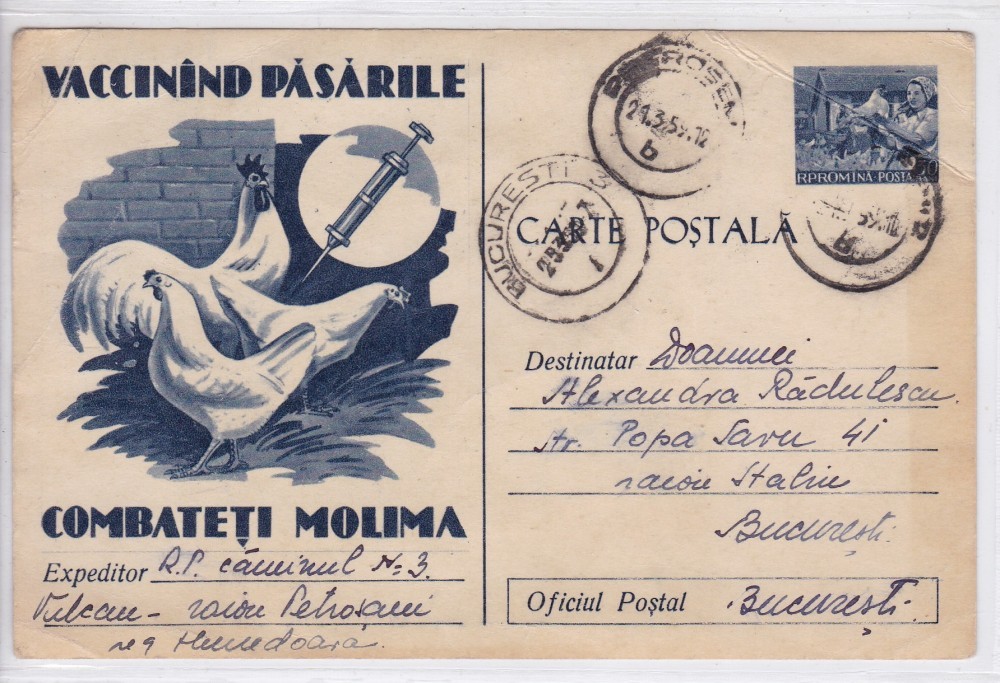 VACCINÎND PĂSĂRILE
COMBATEȚI MOLIMA
Expeditor R.P. căminul No 3.
Vulcan - raion Petroșani
reg Hunedoara.
BUCUREȘTI 3
21.3.59.12
b
RPROMINA-POSTA
CARTE POȘTALĂ
Destinatar Doamnei
Alexandra Rădulescu.
Str. Popa Savu 41
raion Stalin
București.
Oficiul Poștal București.